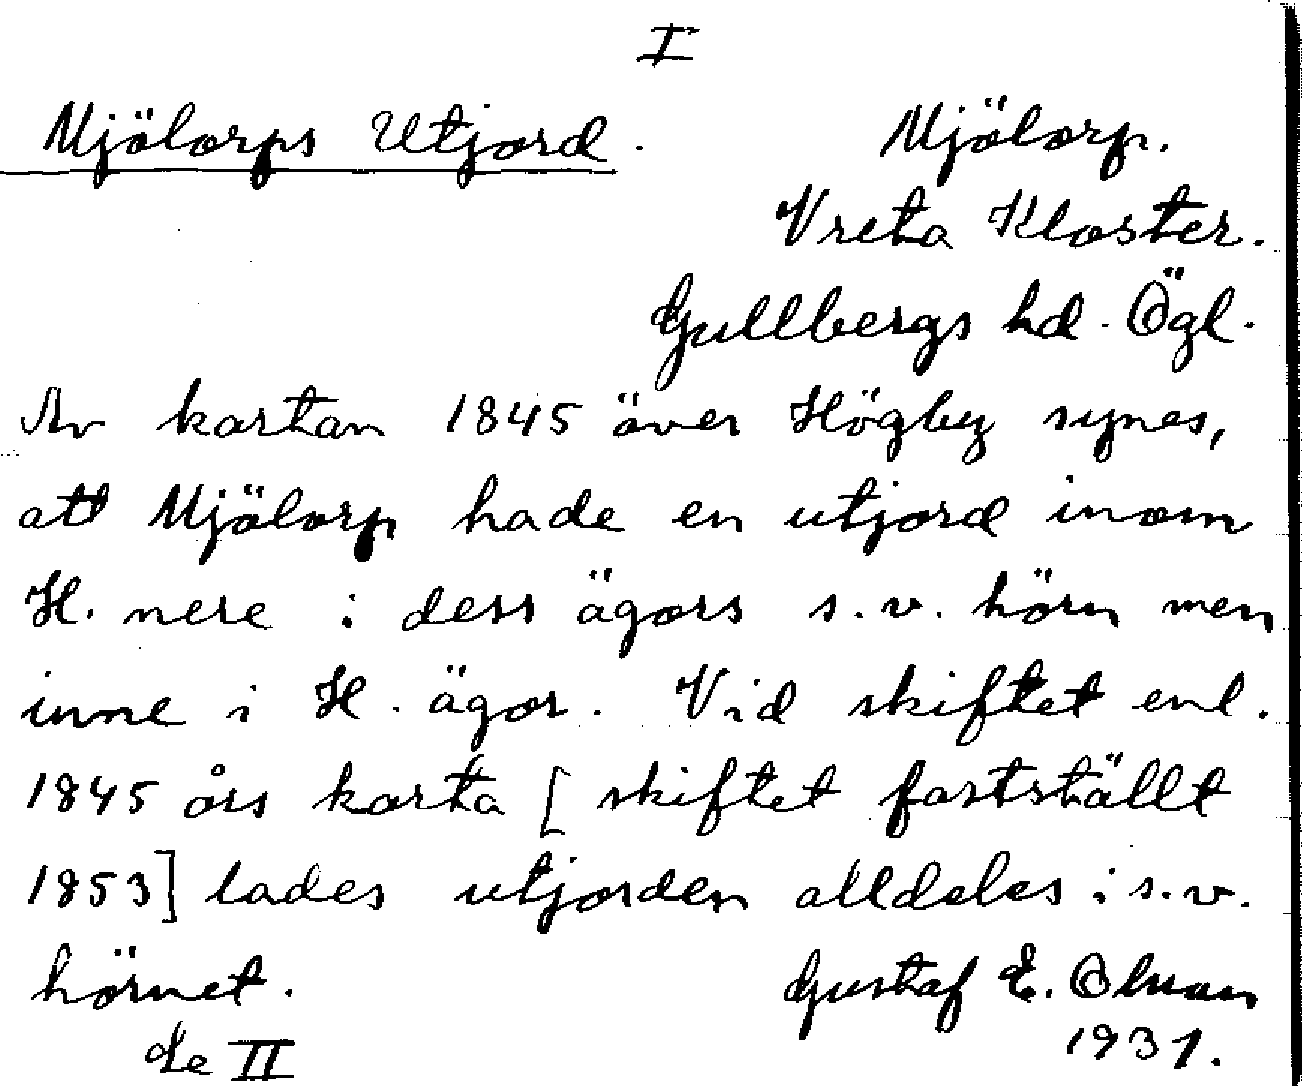 I
Mjölorps Utjord. Mjölorp.
Vreta Kloster.
Gullbergs hd. Ögl.
Av kartan 1845 över Högby synes,
att Mjölorp hade en utjord inom
H. nere i dess ägors s.v. hörn men
inne i H. ägor. Vid skiftet enl.
1845 års karta [skiftet fastställt
1853] lades utjorden alldeles i s.v.
hörnet. Gustaf E. Olsson
Se II 1931.